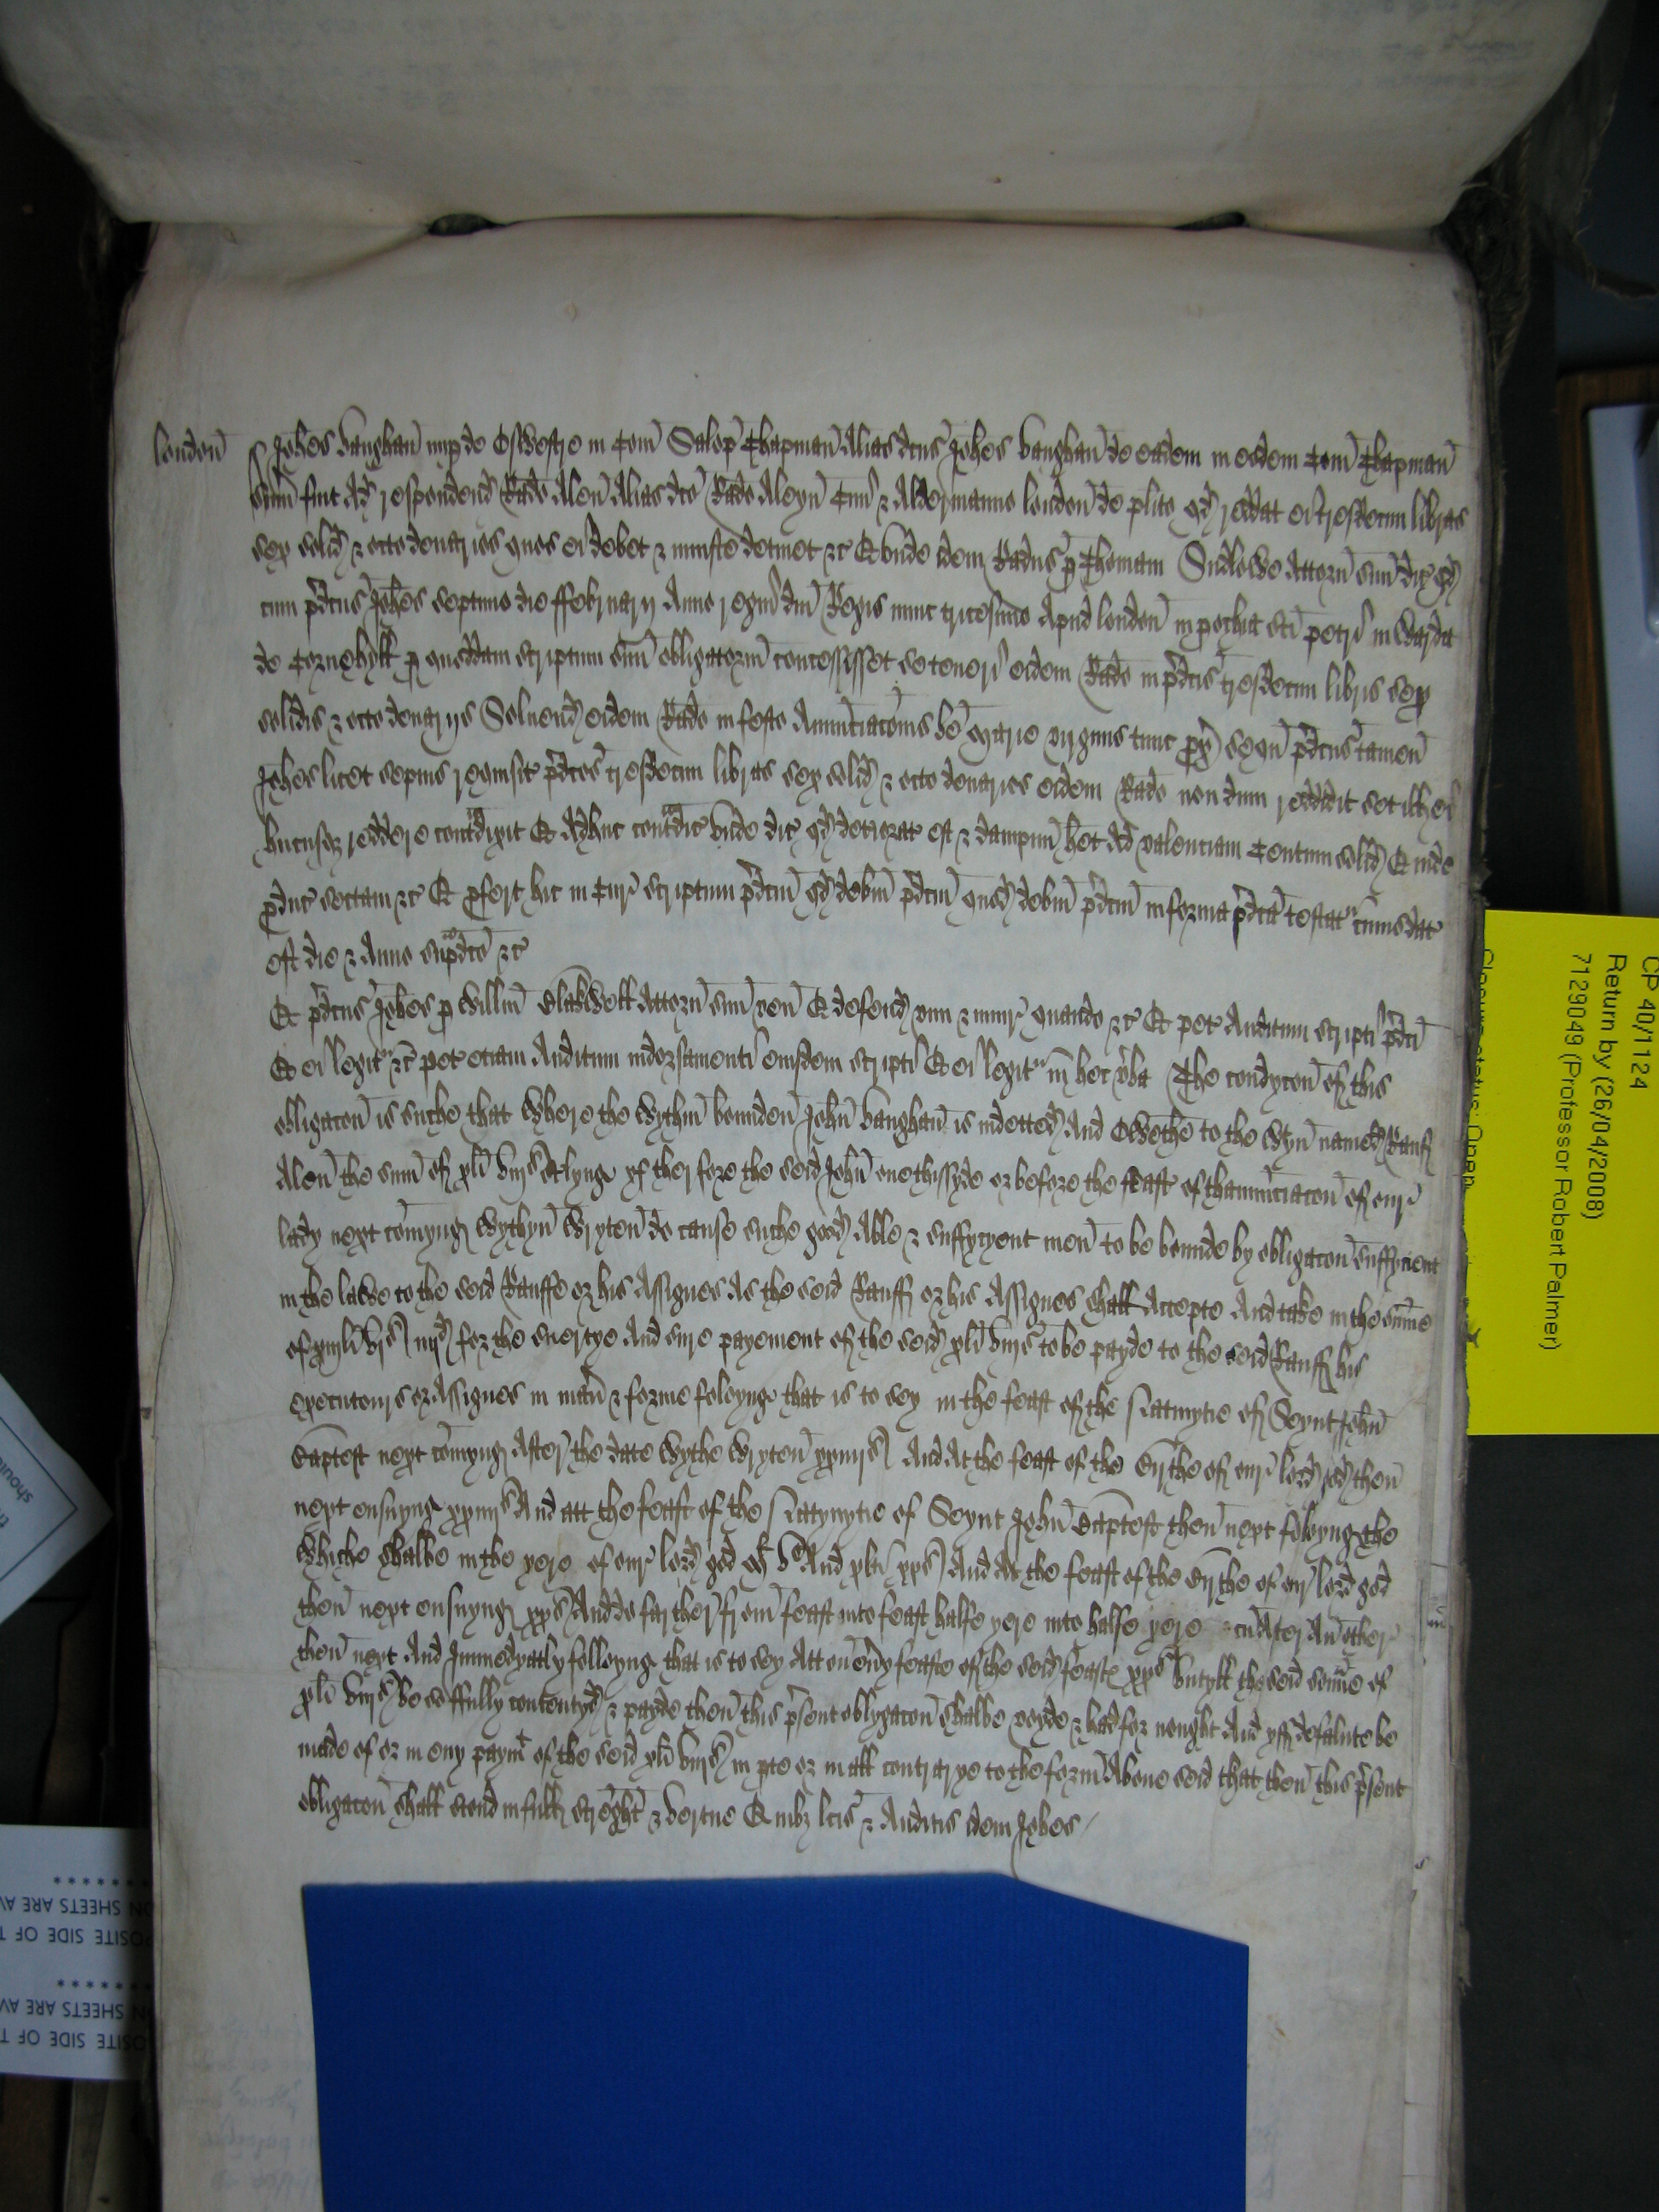 london Johes vaughan nup de Oswestre in Com Salop Chapman Alias dcus Johes vaughan de eadem in eodem Com Chapman
sum fuit Ad respondend Rado Alen Alias dco Rado Aleyn Civi & Aldermanno london de plito qd reddat ei tresdecim libras
sex solid & octo denarios quos ei debet & iniuste detinet &c Et unde idem Radus p Thomam Sudlowe Attorn suu dic qd
cum pdcus Johes septimo die ffebruarij Anno regni dni Regis nunc tricesimo Apud london in pochia sci petri in warda
de Cornehyll p quoddam scriptum suu obligatoriu concessisset se teneri eidem Rado in pdcis tresdecim libris sex
solidis & octo denarijs Soluend eidem Rado in festo Annunciacois be marie virginis tunc px sequ pdcus tamen
Johes licet sepius requisit pdcos tresdecim libras sex solid & octo denarios eidem Rado non dum reddidit set ill ei
hucusqz reddere contradixit Et Adhuc contradic unde dic qd deteriorat est & dampnu het Ad valenciam Centum solid Et inde
pduc sectam &c Et pfert hic in Cur scriptum pdcm qd debm pdcm quod debm pdcm in forma pdca testat cuius dat
est die & Anno supadco &c
Et pdcus Johes p willm Blakwell Attorn suu ven Et defend vim & iniur quando &c Et pet Auditum scripti pdci
Et ei legit &c pet eciam Auditum indorsamenti eiusdem scripti Et ei legit in hec vba The condycon of this
obligacon is suche that where the wythin bounden John vaughan is indetted And Owethe to the wtyn named Rauf
Alen the sum of xli vjs sterlyng yf therfore the seid John onethissyde or before the feast of thannunciacon of our
lady next comyng wythyn wryten do cause suche good Able & suffycyent men to be bounde by obligacon suffycient
in the lawe to the seid Rauffe or his Assignes As the seid Rauff or his Assignes shall Accepte And take in the sume
of iiijd for the suertye And sure payement of the seid xli to be payde to the seid Rauff his
executours or Assignes in man & forme foloyng that is to sey in the feast of the Natiuytie of Seynt John
Baptest next comyng After the date wythe wryten And At the feast of the Byrthe of our lord god then
next ensuyng And att the feast of the Natyuytie of Seynt John Baptest then next foloyng the
whiche shalbe in the yere of our lord god And xxs And At the feast of the Byrthe of our lord god
then next ensuyng xxs And so further from feast into feast halfe yere into halfe yere After An other
then next And Immedyatly folloyng that is to sey Att euery feaste of the seid feaste xxs untyll the seid some of
xli be so fully contentyd & payde then this psent oblygacon shalbe voyde & had for nought And yff defalute be
made of or in eny paymt of the seid xli in pte or in all contrarye to the form Aboue seid that then this psent
obligacon shall stond in full strenght & vertue Quibz lcis & Auditis idem Johes
CP 40/1124
Return by (26/04/2008)
7129049 (Professor Robert Palmer)
ON SHEETS ARE AV
POSITE SIDE OF T
ON SHEETS ARE AV
OSITE SIDE OF T